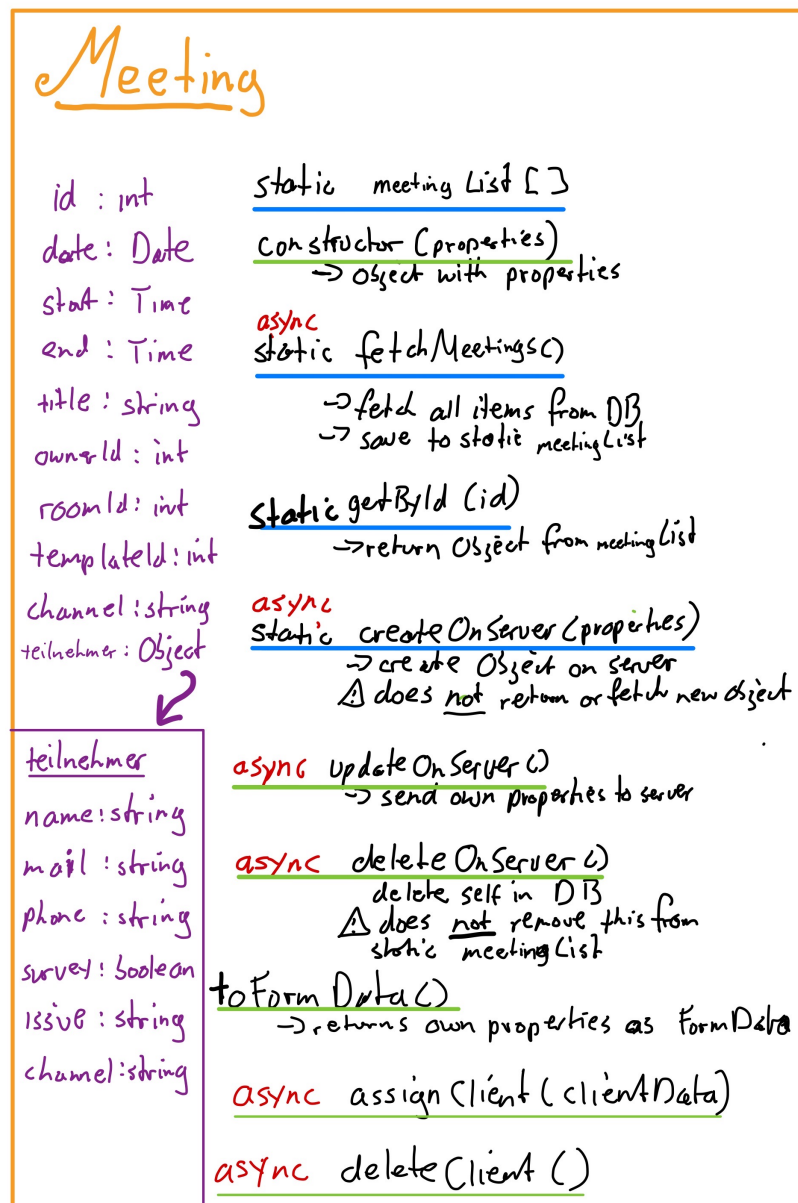 Meeting
id : int
date : Date
start : Time
end : Time
title : string
ownerId : int
roomId : int
templateId : int
channel : string
teilnehmer : Object
teilnehmer
name : string
mail : string
phone : string
survey : boolean
issue : string
channel : string
static meetingList []
constructor (properties)
→ Object with properties
async
static fetchMeetings()
→ fetch all items from DB
→ save to static meetingList
static getById (id)
→ return Object from meetingList
async
static createOnServer (properties)
→ create Object on server
⚠ does not return or fetch new object
async updateOnServer ()
→ send own properties to server
async deleteOnServer ()
delete self in DB
⚠ does not remove this from
static meetingList
toFormData ()
→ returns own properties as FormData
async assignClient (clientData)
async deleteClient ()